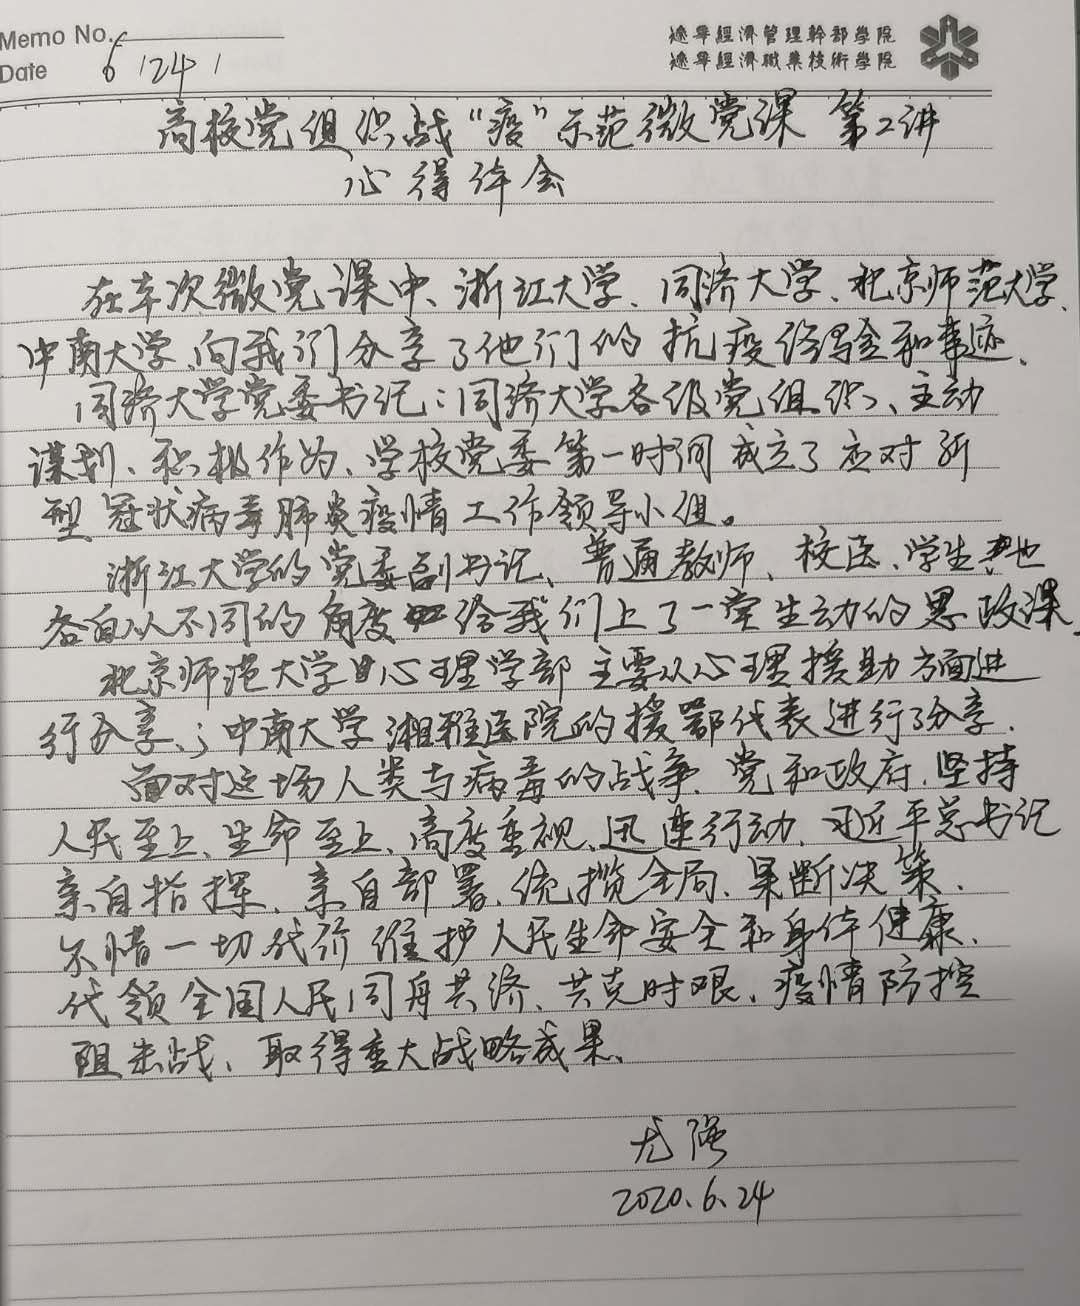 Memo No.
Date 6/24/
遼寧經濟管理幹部學院
遼寧經濟職業技術學院
高校党组织战“疫”示范微党课 第2讲
心得体会
在本次微党课中、浙江大学、同济大学、北京师范大学、
中南大学、向我们分享了他们的抗疫经验和事迹、
同济大学党委书记：同济大学各级党组织、主动
谋划、积极作为、学校党委第一时间成立了应对新
型冠状病毒肺炎疫情工作领导小组。
浙江大学的党委副书记、普通教师、校医、学生地
各自从不同的角度给我们上了一堂生动的思政课、
北京师范大学心理学部主要从心理援助方面进
行分享、；中南大学湘雅医院的援鄂代表进行了分享．
面对这场人类与病毒的战争、党和政府、坚持
人民至上、生命至上、高度重视、迅速行动、习近平总书记
亲自指挥、亲自部署、统揽全局、果断决策、
不惜一切代价维护人民生命安全和身体健康、
代领全国人民同舟共济、共克时艰、疫情防控
阻击战、取得重大战略成果、
尤强
2020.6.24